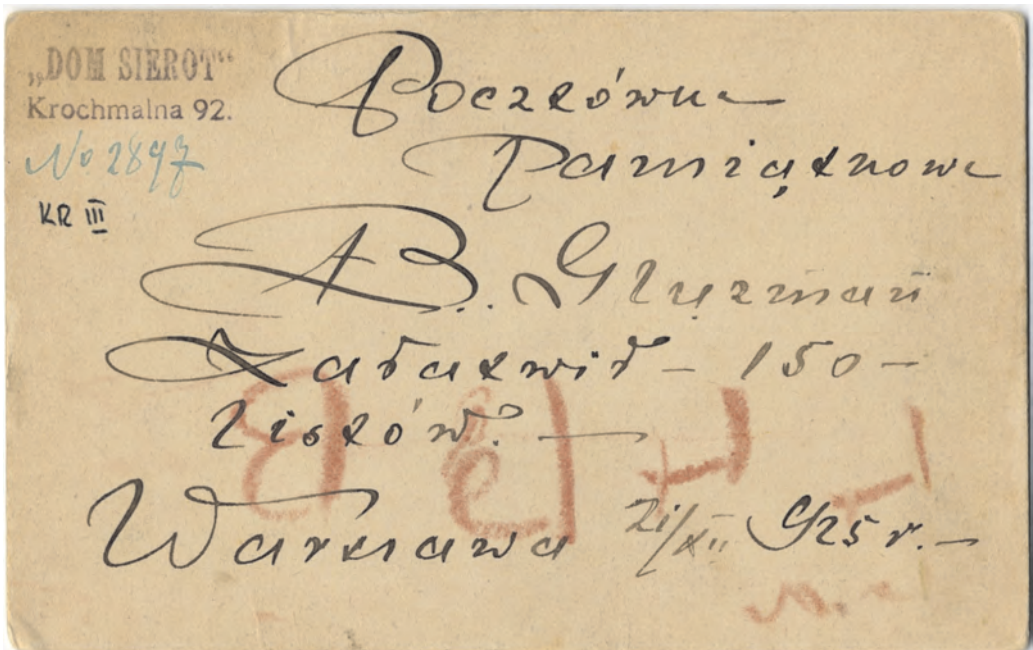 „DOM SIEROT“
Krochmalna 92.
No 2897
KR III
Pocztówka
Pamiątkowa
B. Gluzman
Załatwił – 150 –
listów. —
Warszawa 21/XII 925 r. –